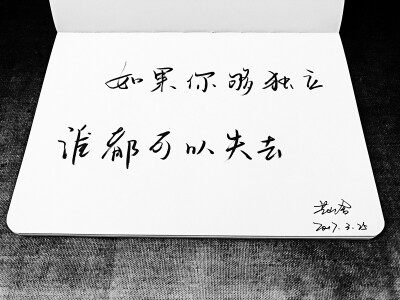 如果你够独立
谁都可以失去
2017.3.25